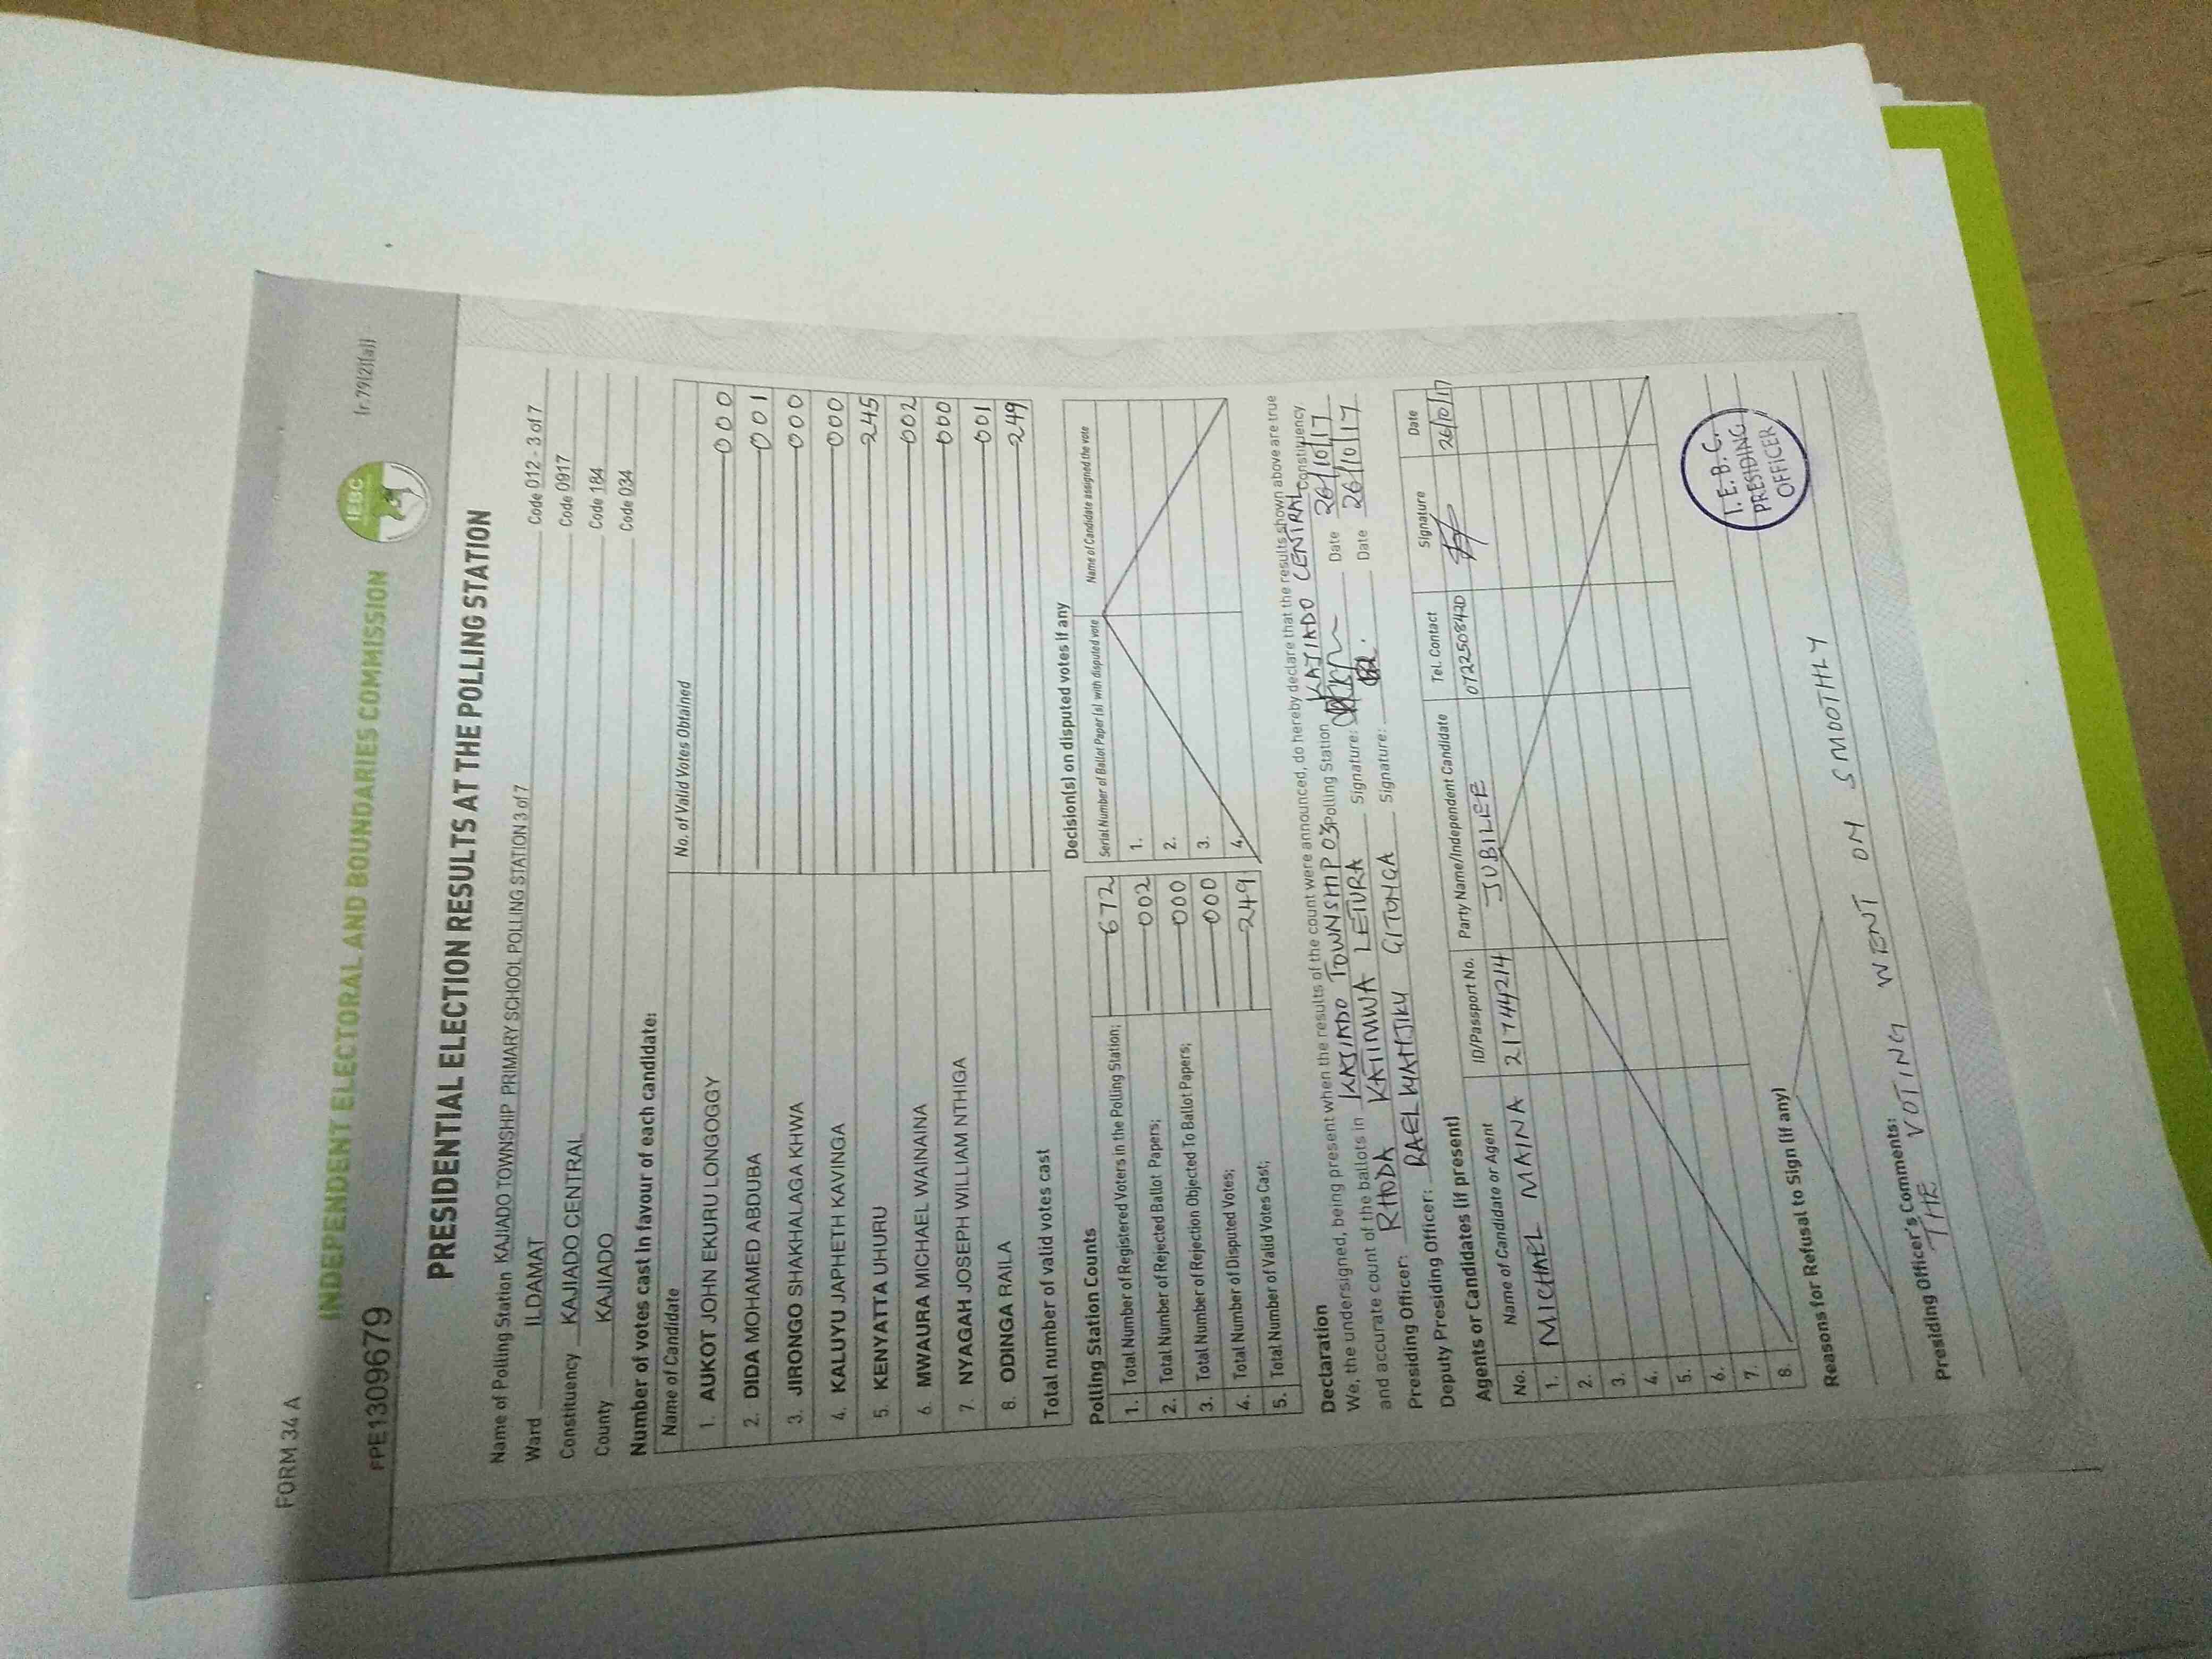 FORM 34 A
INDEPENDENT ELECTORAL AND BOUNDARIES COMMISSION
IEBC
(r.79(2)(a))
FPE1309679
PRESIDENTIAL ELECTION RESULTS AT THE POLLING STATION
Name of Polling Station KAJIADO TOWNSHIP PRIMARY SCHOOL POLLING STATION 3 of 7 Code 012 - 3 of 7
Ward ILDAMAT Code 0917
Constituency KAJIADO CENTRAL Code 184
County KAJIADO Code 034
Number of votes cast in favour of each candidate:
Name of Candidate No. of Valid Votes Obtained
1. AUKOT JOHN EKURU LONGOGGY 000
2. DIDA MOHAMED ABDUBA 001
3. JIRONGO SHAKHALAGA KHWA 000
4. KALUYU JAPHETH KAVINGA 000
5. KENYATTA UHURU 245
6. MWAURA MICHAEL WAINAINA 002
7. NYAGAH JOSEPH WILLIAM NTHIGA 000
8. ODINGA RAILA 001
Total number of valid votes cast 249
Polling Station Counts
1. Total Number of Registered Voters in the Polling Station; 672
2. Total Number of Rejected Ballot Papers; 002
3. Total Number of Rejection Objected To Ballot Papers; 000
4. Total Number of Disputed Votes; 000
5. Total Number of Valid Votes Cast; 249
Decision(s) on disputed votes if any
Serial Number of Ballot Paper (s) with disputed vote Name of Candidate assigned the vote
1.
2.
3.
4.
Declaration
We, the undersigned, being present when the results of the count were announced, do hereby declare that the results shown above are true
and accurate count of the ballots in KAJIADO TOWNSHIP 03 Polling Station KAJIADO CENTRAL Constituency.
Presiding Officer: RHODA KATIMWA LETURA Signature: Date 26/10/17
Deputy Presiding Officer: RAEL WANJIKU GITONGA Signature: Date 26/10/17
Agents or Candidates (if present)
No. Name of Candidate or Agent ID/Passport No. Party Name/Independent Candidate Tel. Contact Signature Date
1. MICHAEL MAINA 21744214 JUBILEE 0722508420 26/10/17
2.
3.
4.
5.
6.
7.
8.
Reasons for Refusal to Sign (if any)
I.E.B.C.
PRESIDING
OFFICER
Presiding Officer's Comments:
THE VOTING WENT ON SMOOTHLY